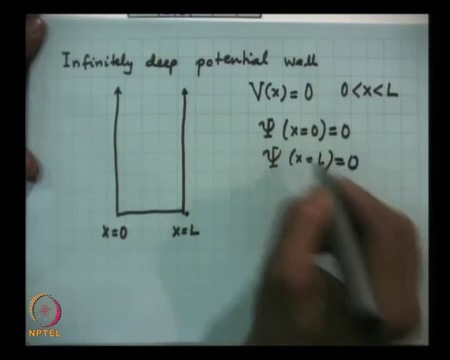 Infinitely deep potential well
V(x)=0   0<x<L
Ψ(x=0)=0
Ψ(x=L)=0
x=0   x=L
NPTEL